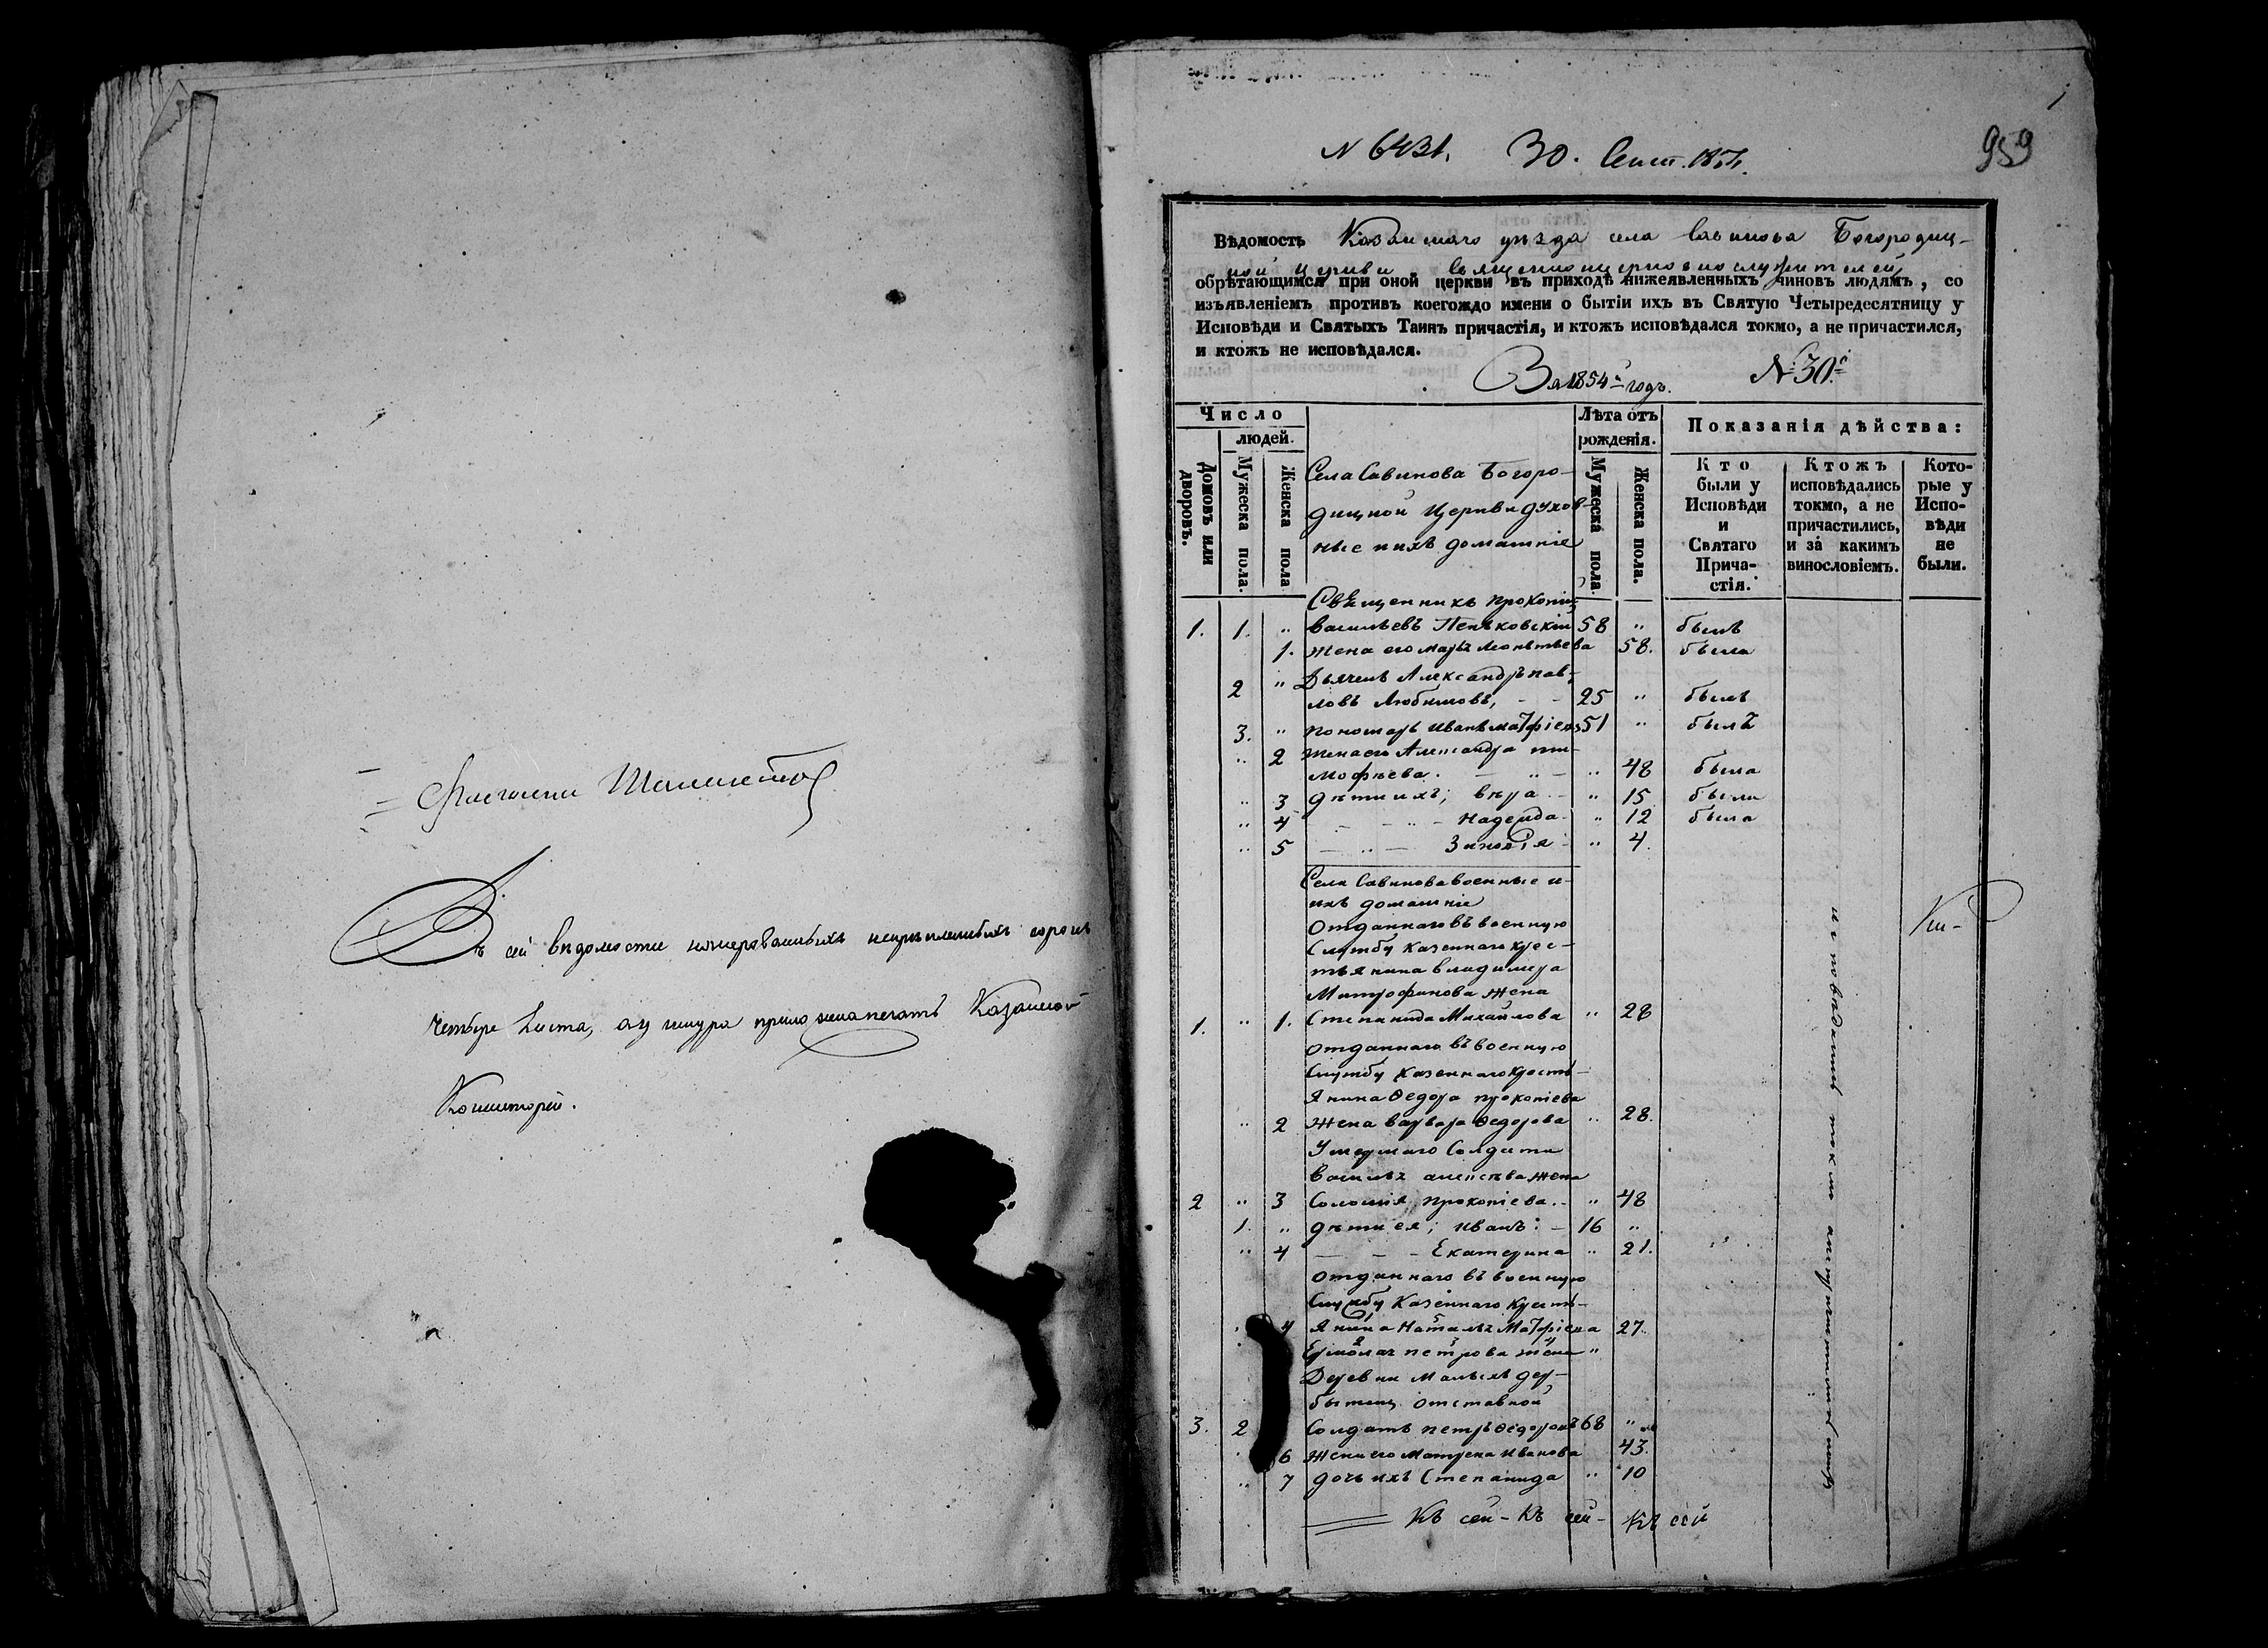 Въ сей вѣдомости нумерованныхъ неприпленныхъ сорокъ
Четыре листа, а у шнура приложена печать Казанской
Консисторіи.
1
N 6431. 30. Сент. 1854.
959
Вѣдомость Казанскаго уѣзда села Савинова Богородиц-
кой Церкви Священноцерковнослужителей
обрѣтающимся при оной церкви въ приходѣ нижеявленныхъ чиновъ людямъ, со
изъявленіемъ противъ коегождо имени о бытіи ихъ въ Святую Четыредесятницу у
Исповѣди и Святыхъ Таинъ причастія, и ктожъ исповѣдался токмо, а не причастился,
и ктожъ не исповѣдался.
За 1854й годъ. № 30й
Число
людей.
Домовъ или дворовъ.
Мужеска пола.
Женска пола
Села Савинова Богоро-
дицкой Церкви духов-
ные и ихъ домашніе
Лѣта отъ
рожденія.
Мужеска пола.
Женска пола.
Показанія дѣйства:
Кто были у Исповѣди и Святаго Прича-стія.
Ктожъ исповѣдались токмо, а не причастились, и за какимъ винословіемъ.
Кото-рые у Испо-вѣди не были.
Священникъ Прокопій
1. 1. " Васильевъ Пеньковскій 58 " былъ
1. Жена его Марья Леонтьева 58. была
" Дьячекъ Александръ Пав-
2 ловъ Любимовъ, - - 25 " былъ
3. " Пономарь Иванъ Матфіевъ 51 " былъ
" 2 Жена его Александра Ти-
мофѣева. - " - " 48 была
" 3 дѣти ихъ; Вѣра - " 15 была
" 4 - - " - Надежда - " 12 была
" 5 - " - Зиновія - " 4.
Села Савинова военные и
ихъ домашніе
Отданнаго въ военную
Службу Казеннаго крес-
тьянина Владимера
Митрофанова жена
1. " 1. Степанида Михайлова " 28
Отданнаго въ военную
Службу Казеннаго Кресть-
янина Ѳедора Прокопіева
" 2 Жена Варвара Ѳедорова " 28.
Умершаго Солдата
Василья Алексѣва жена
2 " 3 Соломія Прокопіева. - " 48
1. " дѣти ея; Иванъ: - 16 "
" 4 - - - Екатерина " 21.
Отданнаго въ военную
Службу Казеннаго Кресть-
4 янина Наталья Матфіева 27.
Ермолая Петрова жена "
Деревни Малыхъ Дер-
бышекъ отставной
3. 2 Солдатъ Петръ Ѳедоровъ 68 "
6 Жена его Матрена Иванова 43.
" 7 дочь ихъ Степанида " 10
Къ сей - Къ сей - Къ сей